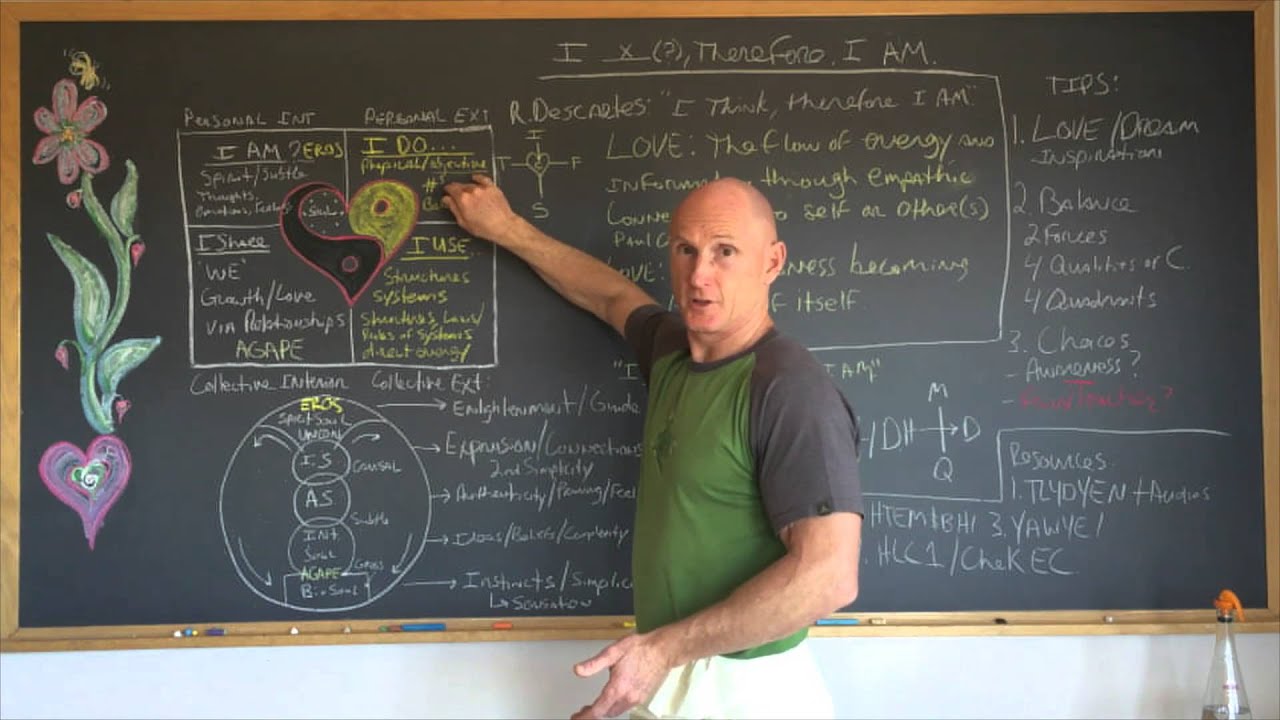 I x (?), Therefore, I AM.
PERSONAL INT
PERSONAL EXT
I AM ? EROS
Spirit/Subtle
Thoughts,
Emotions, Feelings
Soul
I DO...
Physical/objective
#'s
I Share
'WE'
Growth/Love
VIA Relationships
AGAPE
I USE
Structures
Systems
Structures, Laws/
Rules of Systems
direct energy
Collective Interior
Collective Ext:
I
T F
S
R. Descartes: "I Think, therefore I AM"
LOVE: The flow of energy and
through empathic
to self or Other(s)
Paul C
becoming
itself
"I
I AM"
EROS
Spirit Soul
UNCON
I.S
CAUSAL
A.S
Subtle
INT.
Soul
Gross
AGAPE
Bio Soul
Enlightenment/
Expansion/Connections
2nd Simplicity
Authenticity/
Ideas/Beliefs/Complexity
Instincts/
Sensation
M
/DH D
Q
TIPS:
1. LOVE/Dream
Inspirations
2. Balance
2 Forces
4 Qualities of C.
4 Quadrants
3. Choices
- Awareness?
Resources
1. TLYDYEN + Audios
HTEM+BH! 3. YAWYE/
HLC1/Chek EC